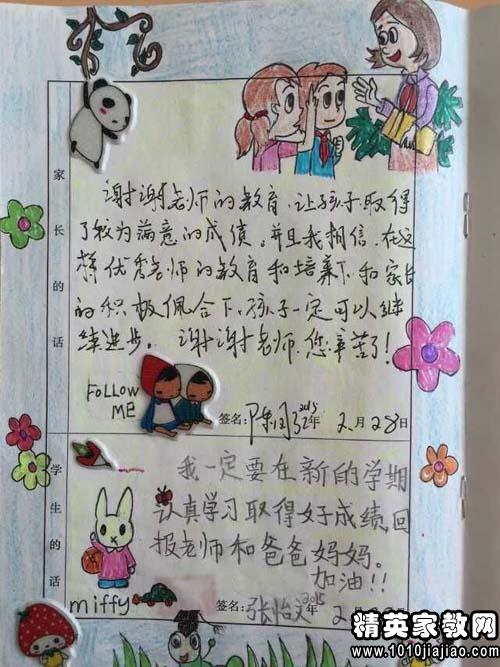 家长的话
谢谢老师的教育,让孩子取得
了较为满意的成绩。并且我相信,在这
群优秀老师的教育和培养下,和家长
的积极佩合下,孩子一定可以继
续进步。谢谢老师,您辛苦了!
FOLLOW
ME
签名: 2015年 2月28日
学生的话
我一定要在新的学期
认真学习取得好成绩,回
报老师和爸爸妈妈。
加油!!
miffy
签名:张怡文 2015年 2
精英家教网
www.1010jiajiao.com